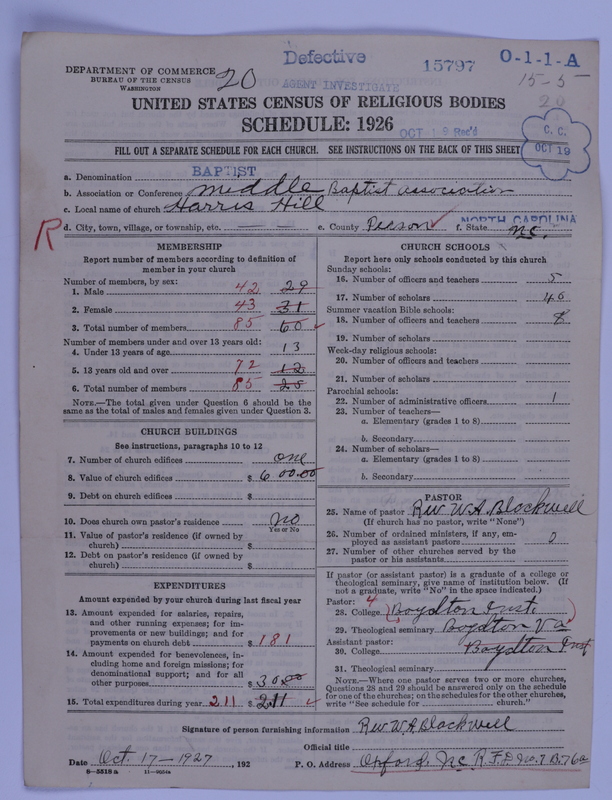 Defective
15797
O-1-1-A
DEPARTMENT OF COMMERCE
BUREAU OF THE CENSUS
WASHINGTON
20
AGENT INVESTIGATE
15-5
20
UNITED STATES CENSUS OF RELIGIOUS BODIES
SCHEDULE: 1926
OCT 19 Rec'd
C. C.
OCT 19
FILL OUT A SEPARATE SCHEDULE FOR EACH CHURCH. SEE INSTRUCTIONS ON THE BACK OF THIS SHEET
a. Denomination BAPTIST
b. Association or Conference Middle Baptist association
c. Local name of church Harris Hill
R
d. City, town, village, or township, etc. e. County Person f. State NORTH CAROLINA NC.
MEMBERSHIP
Report number of members according to definition of
member in your church
Number of members, by sex:
1. Male 42 29
2. Female 43 31
3. Total number of members 85 60
Number of members under and over 13 years old:
4. Under 13 years of age 13
5. 13 years old and over 72 12
6. Total number of members 85 25
NOTE.—The total given under Question 6 should be
same as the total of males and females given under Question 3.
CHURCH BUILDINGS
See instructions, paragraphs 10 to 12
7. Number of church edifices one
8. Value of church edifices $ 600.00
9. Debt on church edifices $
10. Does church own pastor's residence no
Yes or No
11. Value of pastor's residence (if owned by
church) $
12. Debt on pastor's residence (if owned by
church) $
EXPENDITURES
Amount expended by your church during last fiscal year
13. Amount expended for salaries, repairs,
and other running expenses; for im-
provements or new buildings; and for
payments on church debt $ 181
14. Amount expended for benevolences, in-
cluding home and foreign missions; for
denominational support; and for all
other purposes $ 30.00
15. Total expenditures during year 211 $ 211
CHURCH SCHOOLS
Report here only schools conducted by this church
Sunday schools:
16. Number of officers and teachers 5
17. Number of scholars 40
Summer vacation Bible schools:
18. Number of officers and teachers
19. Number of scholars
Week-day religious schools:
20. Number of officers and teachers
21. Number of scholars
Parochial schools:
22. Number of administrative officers 1
23. Number of teachers—
a. Elementary (grades 1 to 8)
b. Secondary
24. Number of scholars—
a. Elementary (grades 1 to 8)
b. Secondary
PASTOR
25. Name of pastor Rev W.A. Blackwell
(If church has no pastor, write "None")
26. Number of ordained ministers, if any, em-
ployed as assistant pastors 2
27. Number of other churches served by the
pastor or his assistants
If pastor (or assistant pastor) is a graduate of a college or
theological seminary, give name of institution below. (If
not a graduate, write "No" in the space indicated.)
Pastor: 4
28. College Boydton Inst.
29. Theological seminary Boydton Va
Assistant pastor:
30. College Boydton Inst
31. Theological seminary
NOTE.—Where one pastor serves two or more churches,
Questions 28 and 29 should be answered only on the schedule
for one of the churches; on the schedules for the other churches,
write "See schedule for church."
Signature of person furnishing information Rev W A Blackwell
Official title
Date Oct. 17—1927, 192 P. O. Address Oxford, NC R.F.D. No. 7 B.76a
8—5518 a 11—9024a